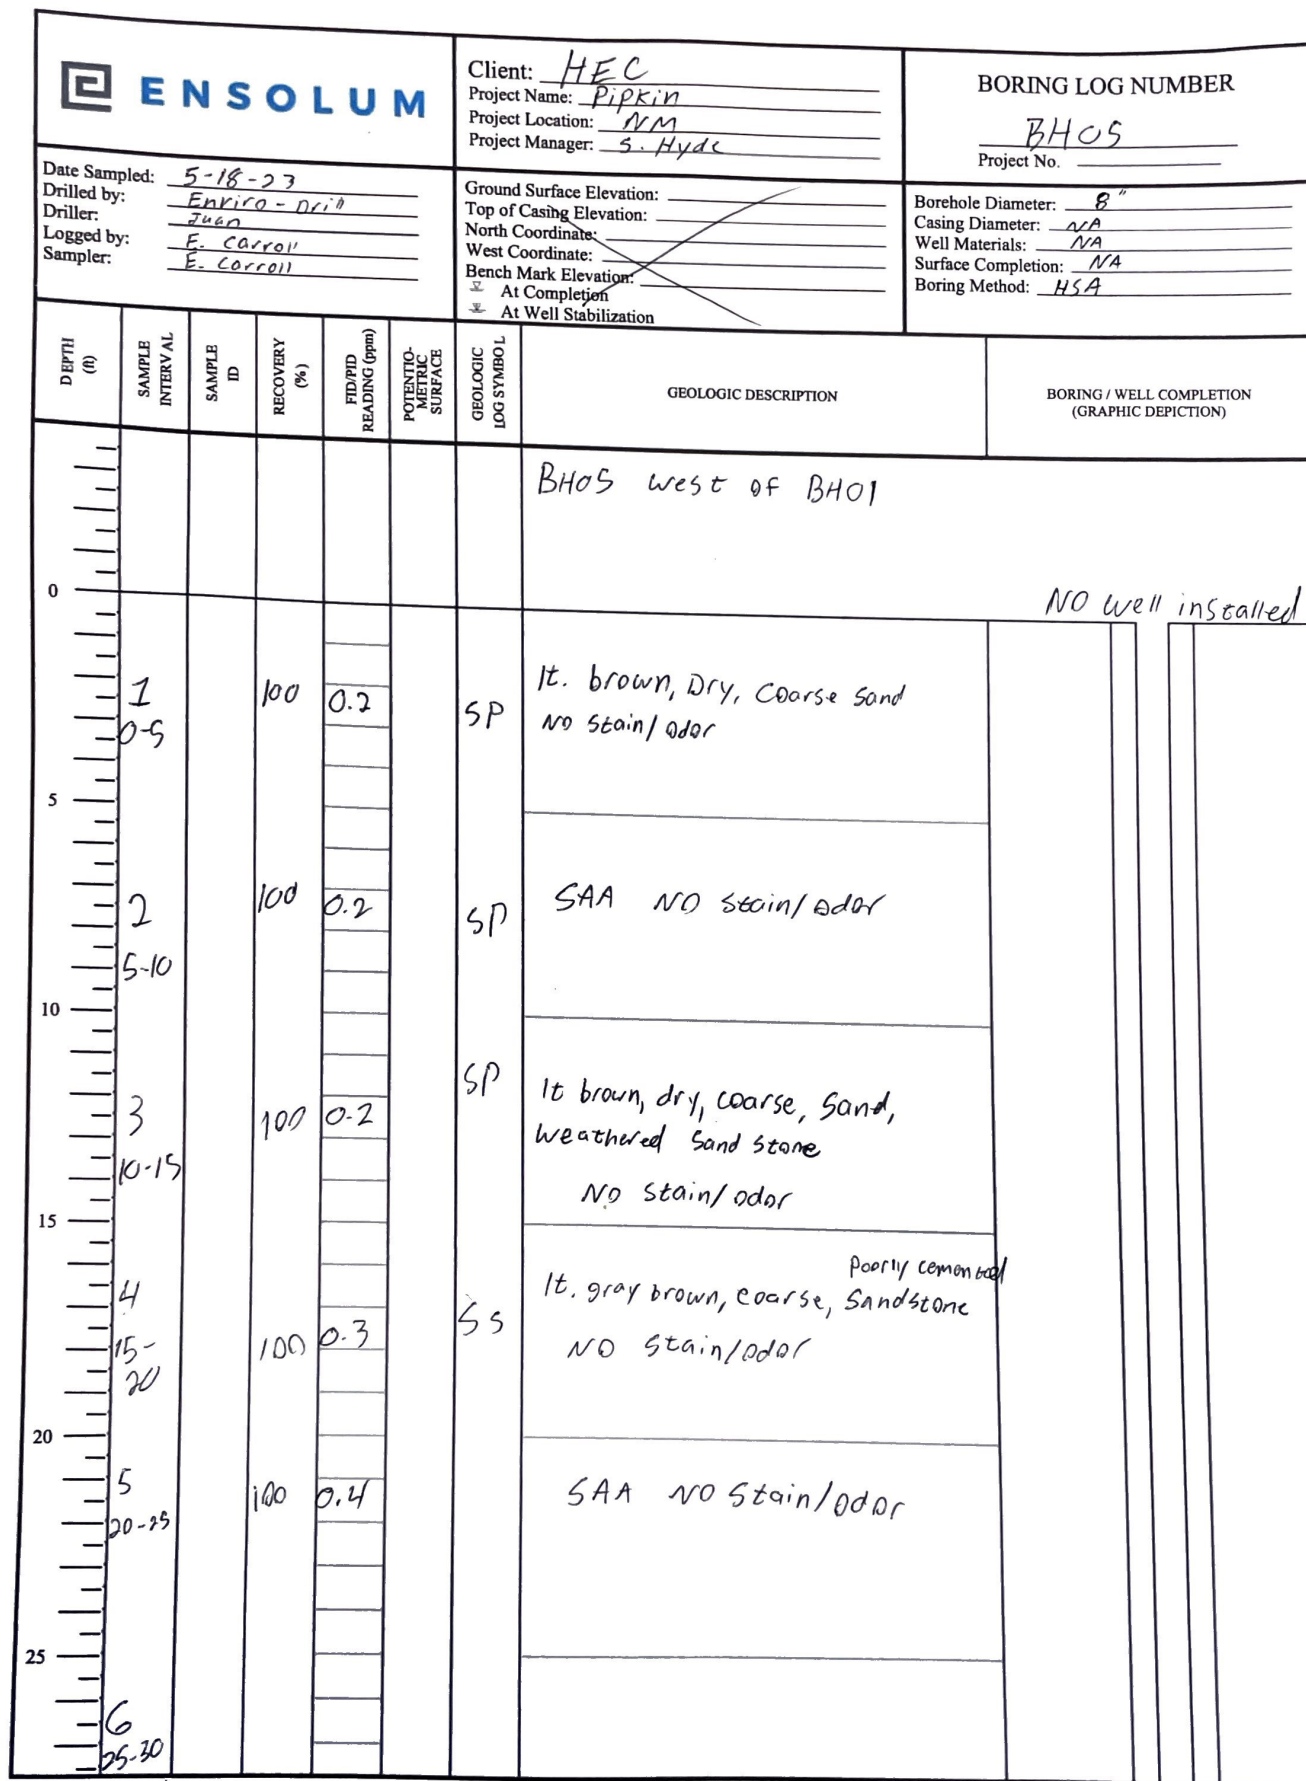 ENSOLUM
Client: HEC
Project Name: Pipkin
Project Location: NM
Project Manager: S. Hyde
BORING LOG NUMBER
BH05
Project No.
Date Sampled: 5-18-23
Drilled by: Enviro-Drill
Driller: Juan
Logged by: E. Carroll
Sampler: E. Carroll
Ground Surface Elevation:
Top of Casing Elevation:
North Coordinate:
West Coordinate:
Bench Mark Elevation:
At Completion
At Well Stabilization
Borehole Diameter: 8"
Casing Diameter: NA
Well Materials: NA
Surface Completion: NA
Boring Method: HSA
DEPTH
(ft)
SAMPLE
INTERVAL
SAMPLE
ID
RECOVERY
(%)
FID/PID
READING (ppm)
POTENTIO-
METRIC
SURFACE
GEOLOGIC
LOG SYMBOL
GEOLOGIC DESCRIPTION
BORING / WELL COMPLETION
(GRAPHIC DEPICTION)
BH05 west of BH01
0
NO well installed
1
0-5
100
0.2
SP
lt. brown, Dry, Coarse sand
NO Stain/odor
5
2
5-10
100
0.2
SP
SAA NO Stain/odor
10
3
10-15
100
0.2
SP
lt brown, dry, coarse, Sand,
weathered Sand stone
NO Stain/odor
15
4
15-
20
100
0.3
SS
Poorly cemented
lt. gray brown, coarse, Sandstone
NO Stain/odor
20
5
20-25
100
0.4
SAA NO Stain/odor
25
6
25-30